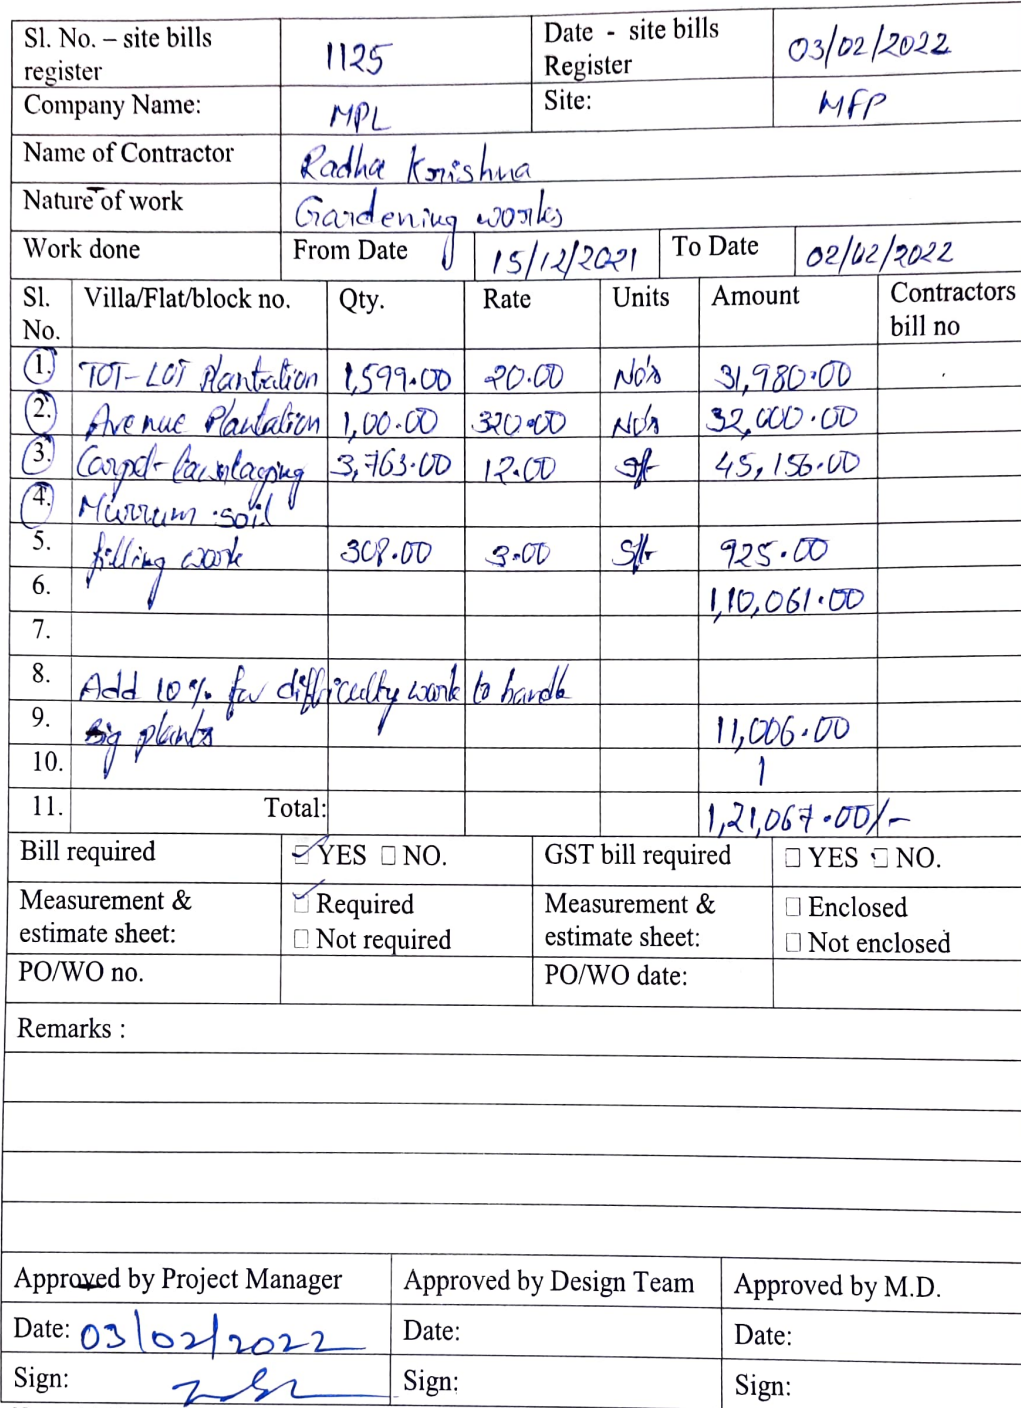 Sl. No. – site bills register 1125 Date - site bills Register 03/02/2022
Company Name: MPL Site: MFP
Name of Contractor Radha Krishna
Nature of work Gardening works
Work done From Date 15/12/2021 To Date 02/02/2022
Sl. No. Villa/Flat/block no. Qty. Rate Units Amount Contractors bill no
1. TOT-LOT Plantation 1,599.00 20.00 No's 31,980.00
2. Avenue Plantation 1,00.00 320.00 No's 32,000.00
3. Carpet 3,763.00 12.00 Sft 45,156.00
4. Murrum soil
5. filling work 308.00 3.00 Sft 925.00
6. 1,10,061.00
7.
8. Add 10% for difficulty work to handle
9. Big plants 11,006.00
10.
11. Total: 1,21,067.00/-
Bill required YES NO. GST bill required YES NO.
Measurement & estimate sheet: Required Not required Measurement & estimate sheet: Enclosed Not enclosed
PO/WO no. PO/WO date:
Remarks :
Approved by Project Manager Approved by Design Team Approved by M.D.
Date: 03/02/2022 Date: Date:
Sign: Sign: Sign: